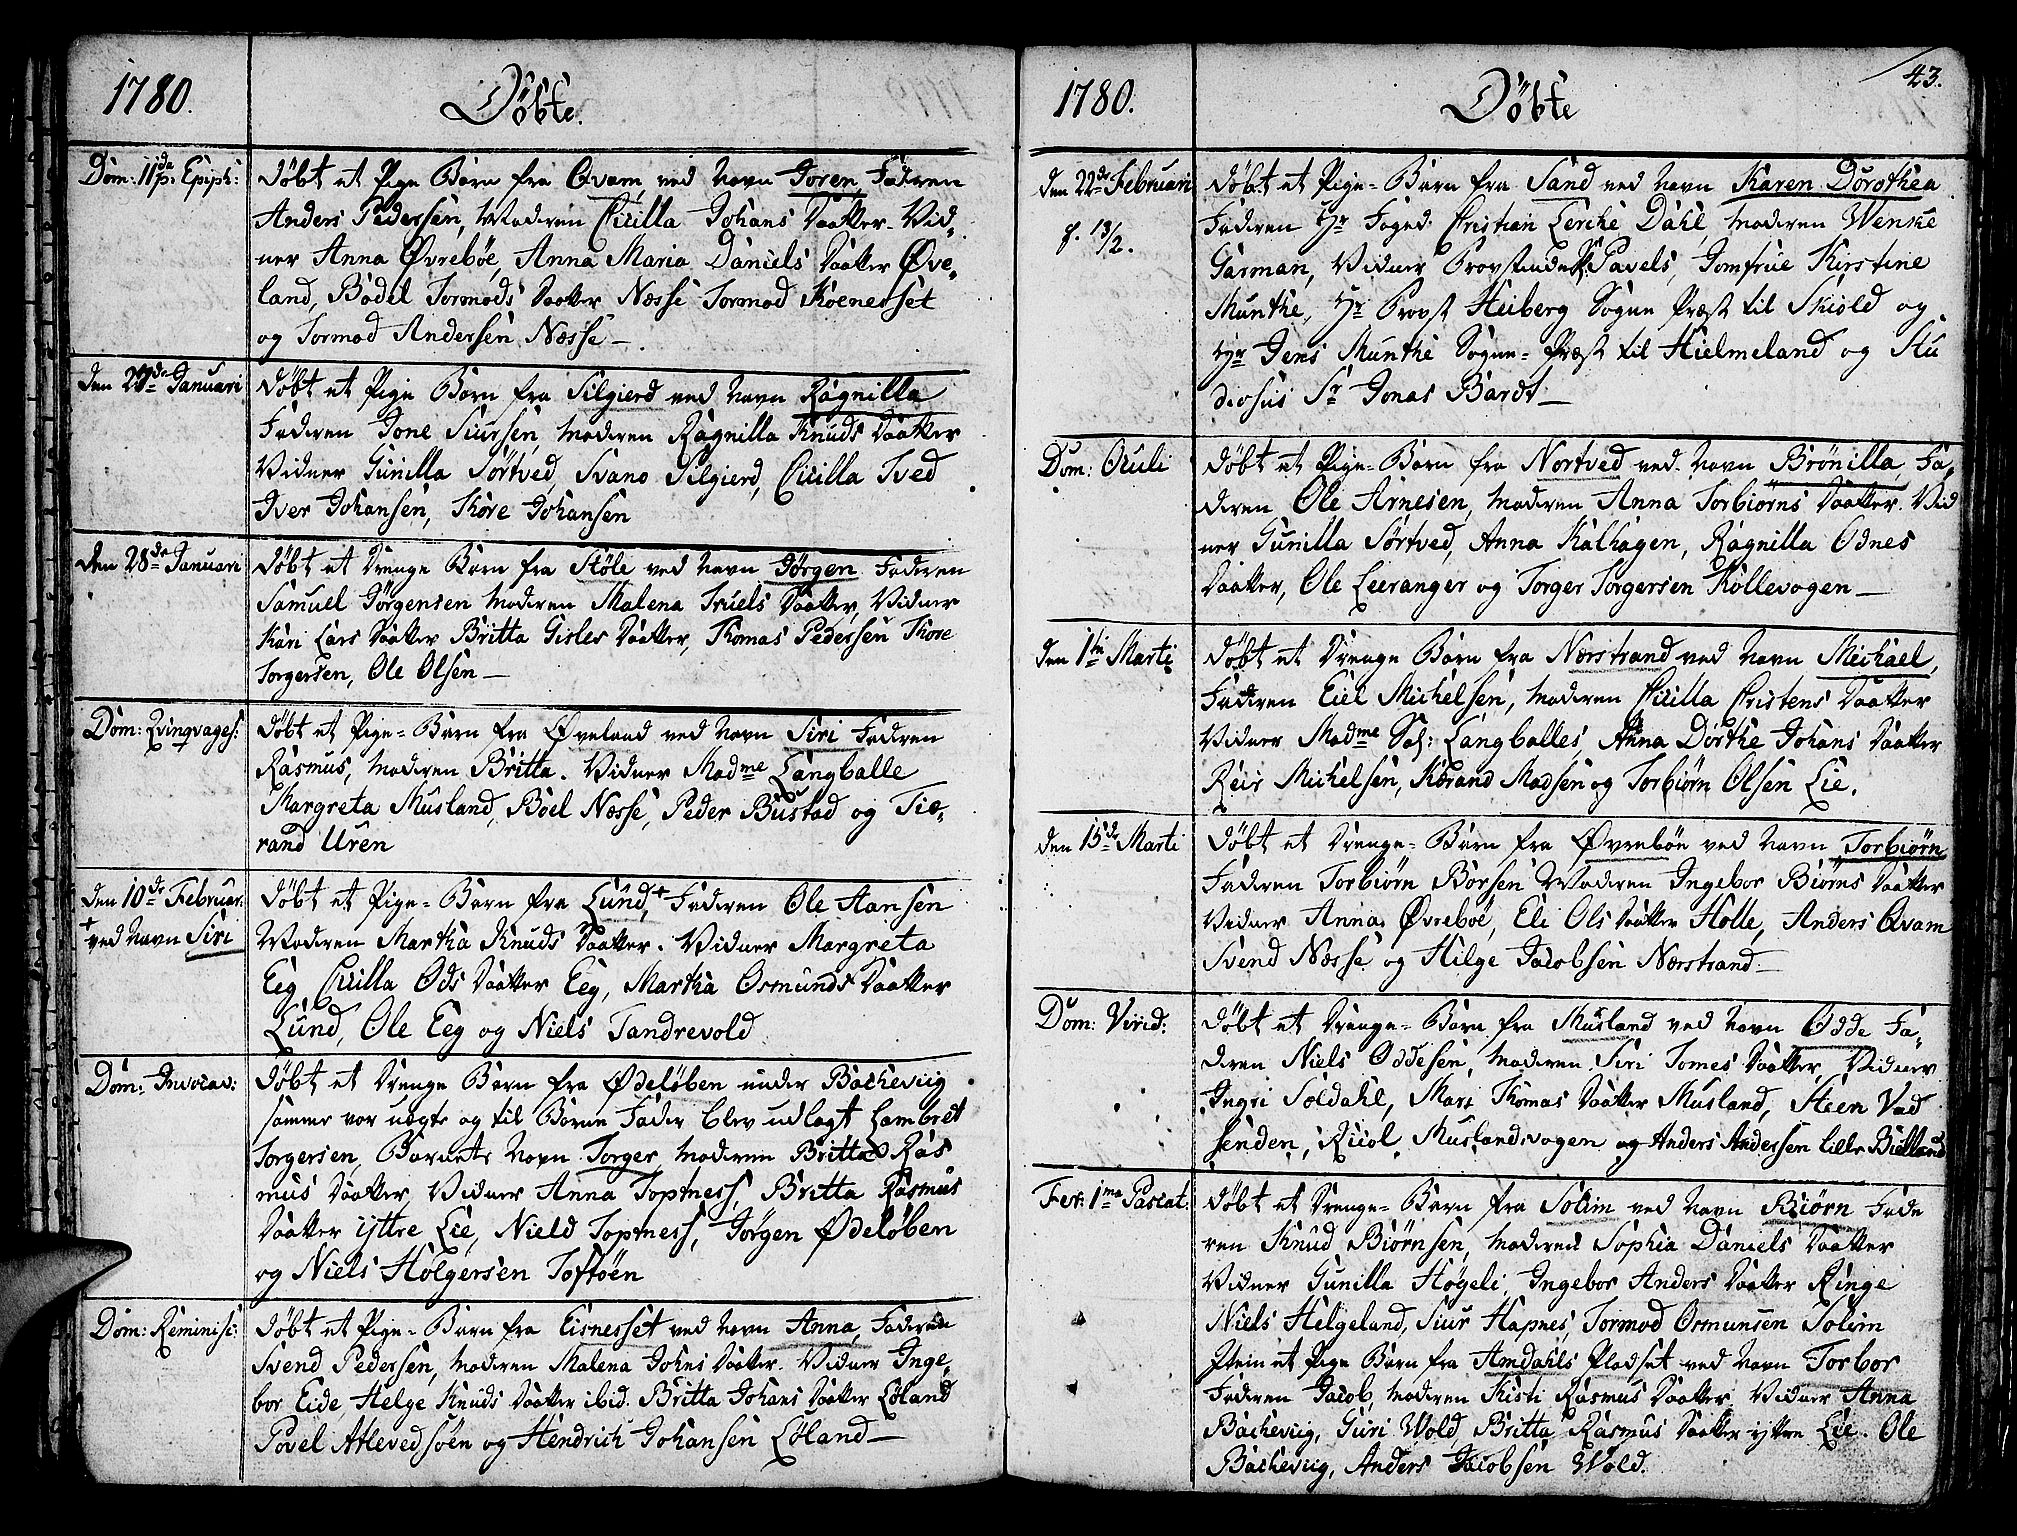 1780.
Döbte.
Dom: 11da p: Epiph:
döbt et Pige Barn fra Qvam, ved Navn Joren, Faderen
Anders Pedersen, Moderen Cicilla Johans Daatter. Vid-
ner Anna Øvreböe, Anna Maria Daniels Daatter Øve-
land, Bodel Tormods Daatter Næsse Tormod Koenerset
og Tormod Andersen Næsse
den 27de Januari
döbt et Pige Barn fra Silgierd ved Navn Ragnilla
Faderen Jone Siursen, Moderen Ragnilla Knuds Daatter
Vidner Gunilla Sörtved, Svano Silgierd, Cicilla Tved
Iver Johansen, Thore Johansen
den 28de Januari
döbt et Drenge Barn fra Støle ved Navn Jörgen Faderen
Samuel Jörgensen Moderen Malena Truels Daatter, Vidner
Kari Lars Daatter Britta Gisles Daatter, Thomas Pedersen Thore
Torgersen, Ole Olsen
Dom: Qvinqvages:
döbt et Pige-Barn fra Øveland ved Navn Siri Faderen
Rasmus, Moderen Britta. Vidner Madme Langballe
Margreta Musland, Boel Næsse, Peder Bustad og Tie-
rand Uren
den 10de Februar.
+ ved Navn Siri
döbt et Pige-Barn fra Lund,+ Faderen Ole Hansen
Moderen Martha Knuds Daatter. Vidner Margreta
Eeg Cicilla Ods Daatter Eeg, Martha Osmunds Daatter
Lund, Ole Eeg og Niels Tandrevold
Dom: Invocav:
döbt et Drenge Barn fra Ødeløben under Bachevig
samme var uægte og til Barne Fader blev udlagt Lambret
Torgersen, Barnets Navn Torger, Moderen Britta Ras
mus Daatter, Vidner Anna Toptness, Britta Rasmus
Daatter yttre Lie, Nield Toptness, Jörgen Ødeløben
og Niels Holgersen Toftöen
Dom: Reminisc:
döbt et Pige-Barn fra Eisnesset ved Navn Anna, Faderen
Svend Pedersen, Moderen Malena Johns Daatter. Vidner Inge,
bor Eide, Helge Knuds Daatter ibid. Britta Johans Daatter Löland
Povel Atlevedsöen og Hendrich Johansen Löland
43.
1780.
Döbte
den 22de Februari
f. 13/2.
döbt et Pige-Barn fra Sand ved Navn Karen Dorothea
Faderen Hr Foged Cristian Lerche Dahl, Moderen Wenche
Garman, Vidner Provstinde Pavels, Jomfrue Kirstine
Munthe, Hr Provst Heiberg Sogne Præst til Skiold og
Hr Jens Munthe Sogne-Præst til Hielmeland og Stu
diosus Sr Jonas Bardt
Dom: Oculi
döbt et Pige-Barn fra Nortved ved Navn Brönilla, Fa-
deren Ole Arnesen, Moderen Anna Torbiörns Daatter. Vid
ner Gunilla Sörtved, Anna Kalhagen, Ragnilla Odnes
Daatter, Ole Leeranger og Torger Torgersen Kollevogen
den 1te Marti
döbt et Drenge Barn fra Nærstrand ved Navn Michael,
Faderen Eiel Michelsen, Moderen Cicilla Cristens Daatter
Vidner Madme Sal: Langballes, Anna Dorthe Johans Daatter
Reir Michelsen, Kærand Madsen og Torbiörn Olsen Lie.
den 15de Marti
döbt et Drenge-Barn fra Øvreböe ved Navn Torbiörn
Faderen Torbiörn Börsen Moderen Ingebor Biörns Daatter
Vidner Anna Øvreböe, Eli Ols Daatter Holle, Anders Qvam
Svend Næsse og Hilge Jacobsen Nærstrand
Dom: Virid:
döbt et Drenge-Barn fra Musland ved Navn Odde Fa-
deren Niels Oddesen, Moderen Siri Tomes Daatter, Vidner
Ingri Soldahl, Mari Thomas Daatter Musland, Steen Vad
senden, Riiol Muslandsvogen og Anders Andersen Lille Bielland
Fer: 1ma Pascat:
döbt et Drenge-Barn fra Solim ved Navn Biörn Fade
ren Knud Biörnsen, Moderen Sophia Daniels Daatter
Vidner Gunilla Högeli, Ingebor Anders Daatter Ringe
Niels Helgeland, Siur Hapnes, Tormod Osmunsen Solim
Item et Pige Barn fra Amdahls Pladset ved Navn Torbor
Faderen Jacob, Moderen Kisti Rasmus Daatter. Vidner Anna
Bachevig, Guri Wold, Britta Rasmus Daatter yttre Lie. Ole
Bachevig, Anders Jacobsen Wold.